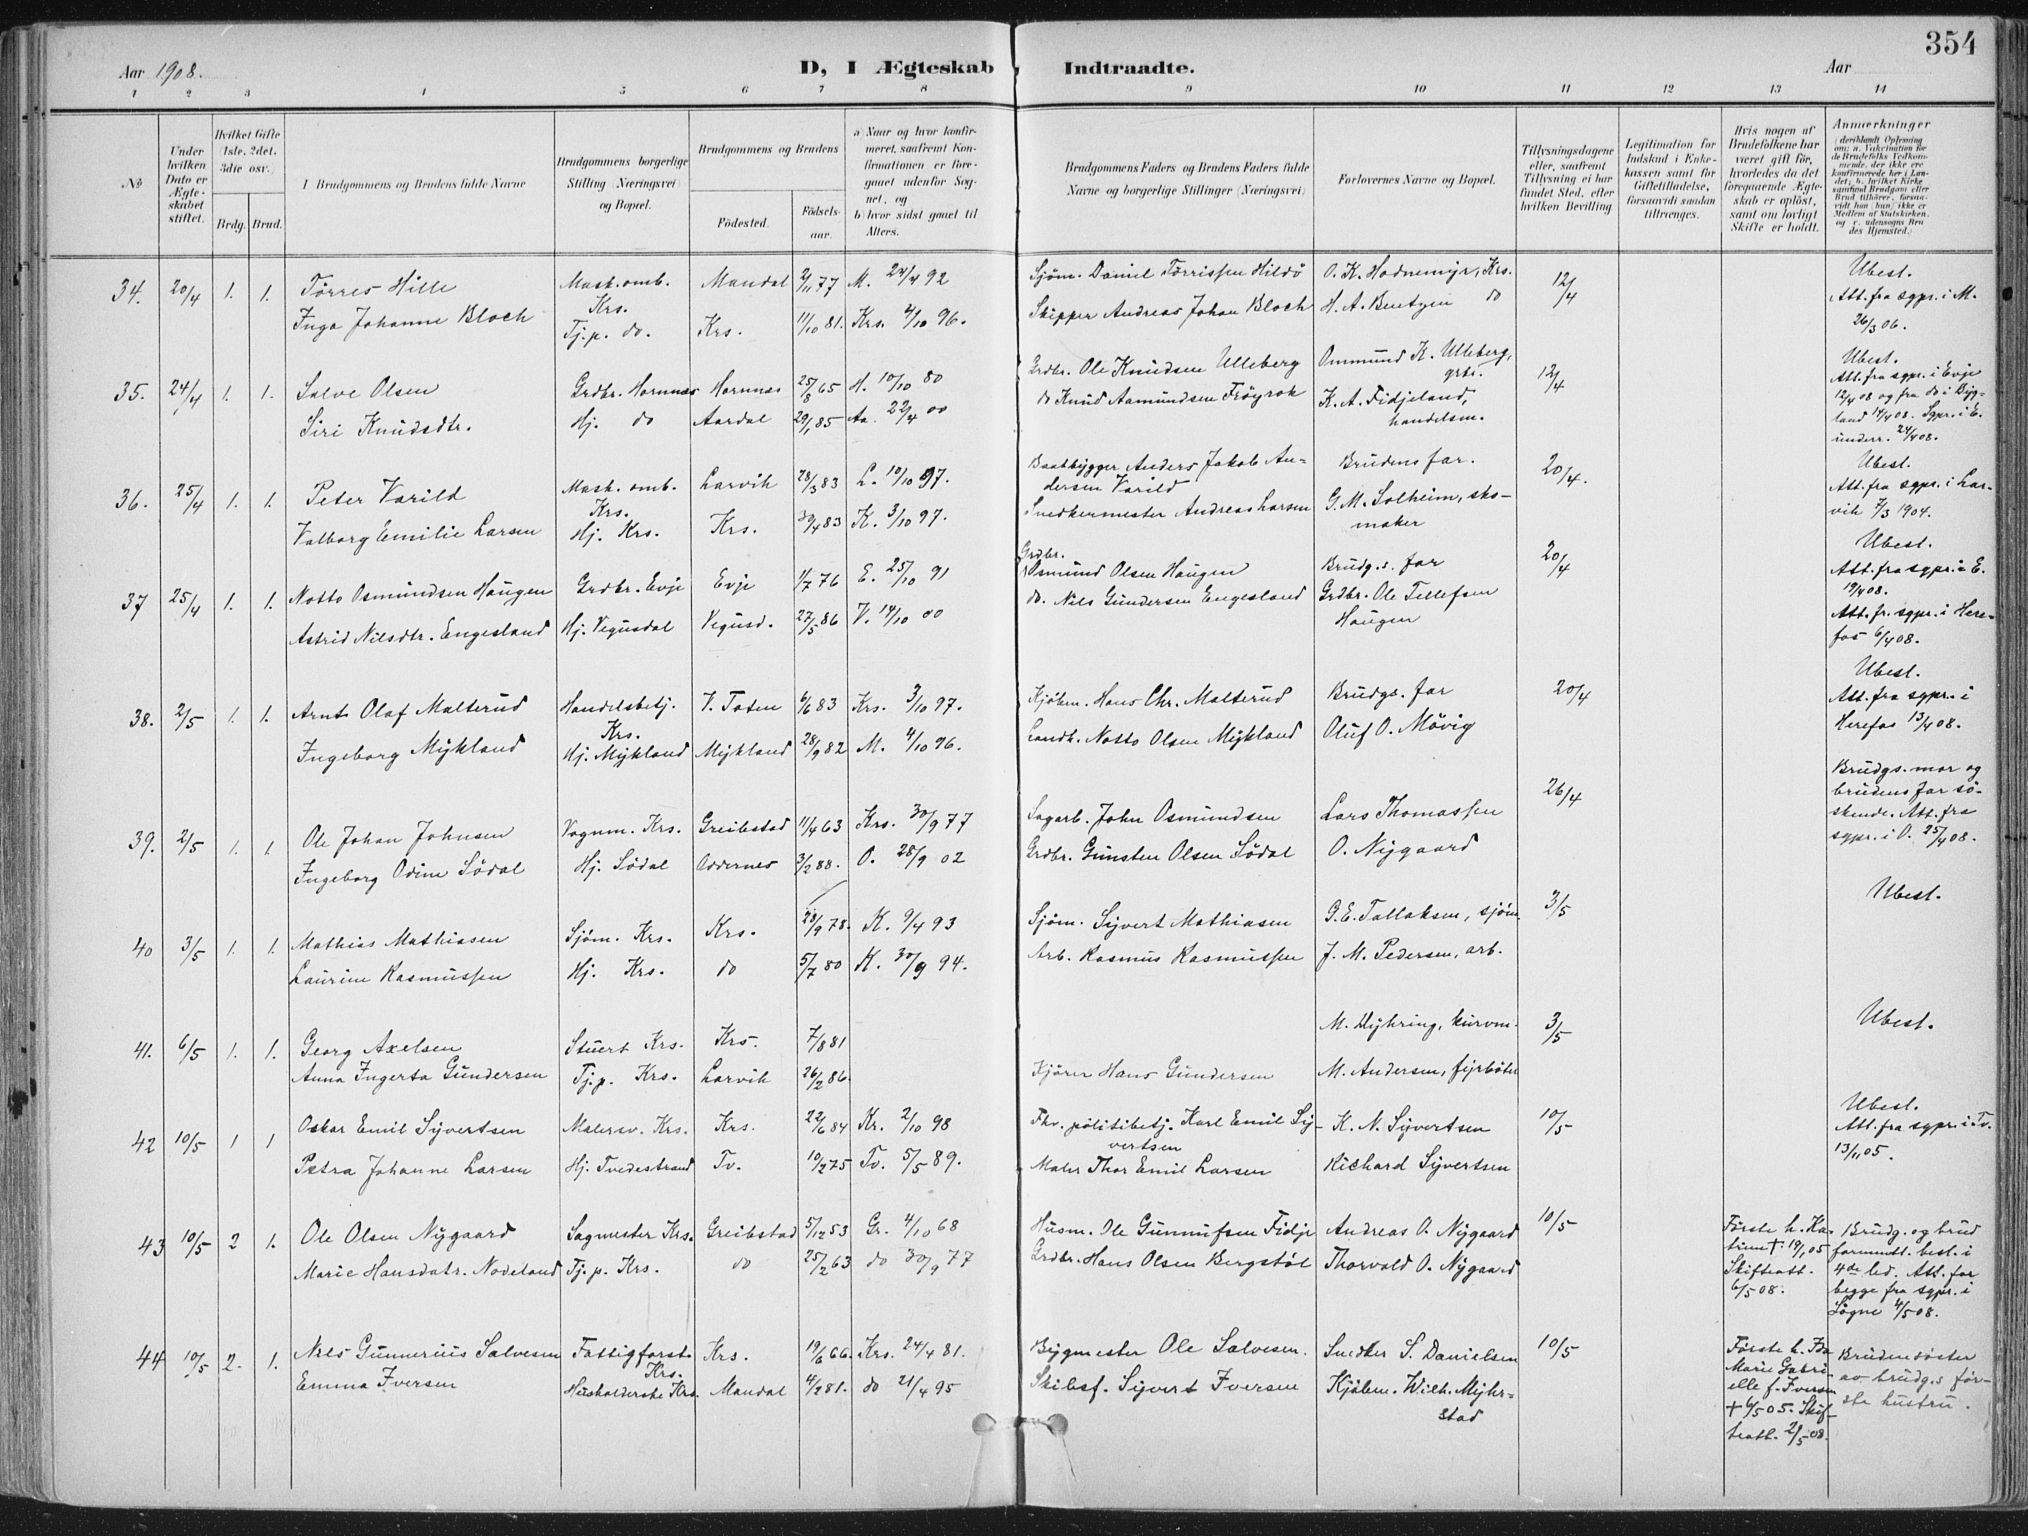 354
Aar 1908.
D, I Ægteskab Indtraadte.
Aar
1 2 3 4 5 6 7 8 9 10 11 12 13 14
No
Under hvilken Dato er Ægteskabet stiftet.
Hvilket Gifte (1ste, 2det, 3die osv.)
Brdg. Brud.
I Brudgommens og Brudens fulde Navne
Brudgommens borgerlige Stilling (Næringsvei) og Bopæl.
Brudgommens og Brudens
Födested.
Födsels-aar.
a) Naar og hvor konfirmeret, saafremt Konfirmationen er foregaaet udenfor Sognet, og
b) hvor sidst gaaet til Alters.
Brudgommens Faders og Brudens Faders fulde Navne og borgerlige Stillinger (Næringsvei)
Forlovernes Navne og Bopæl.
Tillysningsdagene eller, saafremt Tillysning ei har fundet Sted, efter hvilken Bevilling
Legitimation for Indskud i Enkekassen samt for Giftetilladelse, forsaavidt saadan tiltrænges.
Hvis nogen af Brudefolkene har været gift för, hvorledes da det foregaaende Ægteskab er oplöst, samt om lovligt Skifte er holdt.
Anmærkninger
34. 20/4 1. 1. Tørres Hille Mask.omb. Krs. Mandal 2/11 77 M. 24/4 92 Sjøm. Daniel Tørrissen Hildö O. K. Hodnemyr, Krs. 12/4 Ubest. Att. fra sgpr. i M. 26/3 06.
Inga Johanne Bloch Tj.p. do. Krs. 11/10 81. Krs. 4/10 96. Skipper Andreas Johan Bloch H. A. Bentzen do
35. 24/4 1. 1. Salve Olsen Grdbr. Hornnes Hornnes 25/8 65 H. 10/10 80 Grdbr. Ole Knudsen Ulleberg Ommund K. Ulleberg, grbr. 12/4 Ubest. Att. fra sgpr. i Evje 12/4 08 og fra do i Bygland 14/4 08. Sgpr. i E. underr. 24/4 08.
Siri Knudsdtr. Hj. do Aardal 29/1 85 Aa. 22/4 00 do Knud Aamundsen Fröyrok K. A. Fidjeland, handelsm.
36. 25/4 1. 1. Peter Varild Mask. omb. Krs. Larvik 28/3 83 L. 10/10 97. Baatbygger Anders Jakob Andersen Varild Brudens far. 20/4. Ubest. Att. fra sgpr. i Larvik 7/3 1904.
Valborg Emilie Larsen Hj. Krs. Krs. 30/4 83 K. 3/10 97. Snedkermester Andreas Larsen G. M. Solheim, skomaker
37 25/4 1. 1. Notto Osmundsen Haugen Grdbr. Evje Evje 1/7 76 E. 25/10 91 Grdbr. Osmund Olsen Haugen Brudg.s. far 20/4 Ubest. Att. fra sgpr. i E. 19/4 08. Att. fr. sgpr. i Herefos 6/4 08.
Astrid Nilsdtr. Engesland Hj. Vegusdal Vegusd. 27/5 86 V. 14/10 00 do. Nils Gundersen Engesland Grdbr. Ole Tellefsen Haugen
38. 2/5 1. 1. Arnt Olaf Malterud Handelsbetj. Krs. V. Toten 6/6 83 Krs. 3/10 97. Kjöbm. Hans Chr. Malterud Brudgs. far 20/4 Ubest. Att. fra sgpr. i Herefos 13/4 08.
Ingeborg Mykland Hj. Mykland Mykland 28/9 82 M. 4/10 96. Landh. Notto Olsen Mykland Oluf O. Mövig
39. 2/5 1. 1. Ole Johan Johnsen Vognm. Krs. Greibstad 11/4 63 Krs. 30/9 77 Sagarb. John Osmundsen Lars Thomassen 26/4 Brudgs. mor og brudens far söskende. Att. fra sgpr. i O. 25/4 08.
Ingeborg Odine Södal Hj. Södal Oddernes 3/2 88. O. 28/9 02 Grdbr. Gunsten Olsen Södal O. Nygaard
40 3/5 1. 1. Mathias Mathiasen Sjöm. Krs. Krs. 28/9 78. K. 9/4 93 Sjöm. Syvert Mathiasen G. E. Tallaksen, sjöm. 3/5 Ubest.
Laurine Rasmussen Hj. Krs. do 5/7 80 K. 30/9 94. Arb. Rasmus Rasmussen J. M. Pedersen, arb.
41. 6/5 1. 1. Georg Axelsen Stuert Krs. Krs. 7/8 81 M. Myhring, kurvm. 3/5 Ubest.
Anna Ingerta Gundersen Tj.p. Krs. Larvik 26/2 86. Kjörer Hans Gundersen M. Andersen, fyrböter
42 10/5 1 1 Oskar Emil Syvertsen Malersv. Krs. Krs. 22/6 84 Kr. 2/10 98 Fhv. politibetj. Karl Emil Syvertsen K. N. Syvertsen 10/5 Ubest. Att. fra sgpr. i Tv. 13/11 05.
Petra Johanne Larsen Hj. Tvedestrand Tv. 10/2 75 Tv. 5/5 89. Maler Thor Emil Larsen Richard Syvertsen
43 10/5 2 1. Ole Olsen Nygaard Sagmester Krs. Greibstad 5/12 53 Gr. 4/10 68 Husm. Ole Gunnufsen Fidje Andreas O. Nygaard 10/5 Förste h. Katrine † 19/1 05 Skifteatt. 6/5 08. Brudg. og brud formentl. besl. i 4de led. Att. for begge fra sgpr. i Søgne 4/5 08.
Marie Hansdatr. Nodeland Tj.p. Krs. do 25/2 63 do 30/9 77 Grdbr. Hans Olsen Bergstöl Thorvald O. Nygaard
44 10/5 2. 1. Nils Gunnerius Salvesen Fattigforst. Krs. Krs. 19/6 66. Krs. 24/4 81. Bygmester Ole Salvesen. Snedker S. Danielsen 10/5 Förste h. Ida Marie Gabrielle f. Iversen † 6/5 05. Skifteatt. 2/5 08. Bruden söster av brudg.s förste hustru.
Emma Iversen Husholderske Krs. Mandal 4/2 81. do 21/4 95 Skibsf. Syvert Iversen Kjöbm. Wilh. Myhrstad